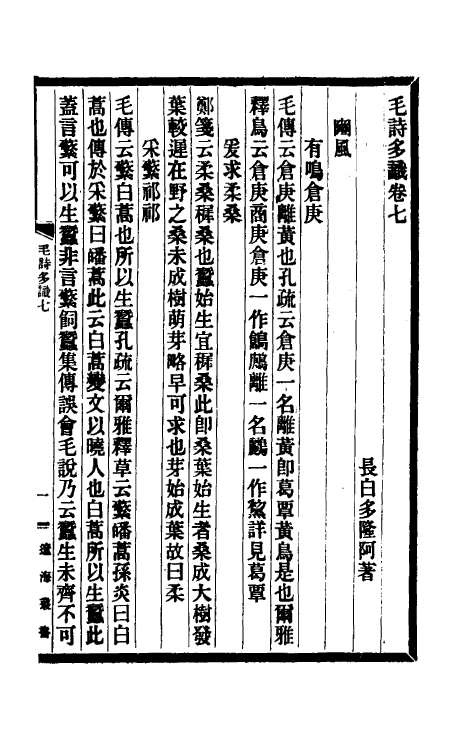 毛詩多識卷七
長白多隆阿著
豳風
有鳴倉庚
毛傳云倉庚離黃也孔疏云倉庚一名離黃卽葛覃黃鳥是也爾雅
釋鳥云倉庚商庚倉庚一作鶬鶊離一名鸝一作鵹詳見葛覃
爰求柔桑
鄭箋云柔桑穉桑也蠶始生宜穉桑此卽桑葉始生者桑成大樹發
葉較遲在野之桑未成樹萌芽略早可求也芽始成葉故曰柔
采蘩祁祁
毛傳云蘩白蒿也所以生蠶孔疏云爾雅釋草云蘩皤蒿孫炎曰白
蒿也傳於采蘩曰皤蒿此云白蒿變文以曉人也白蒿所以生蠶此
蓋言蘩可以生蠶非言蘩飼蠶集傳誤會毛說乃云蠶生未齊不可
毛詩多識七
一
遼海叢書